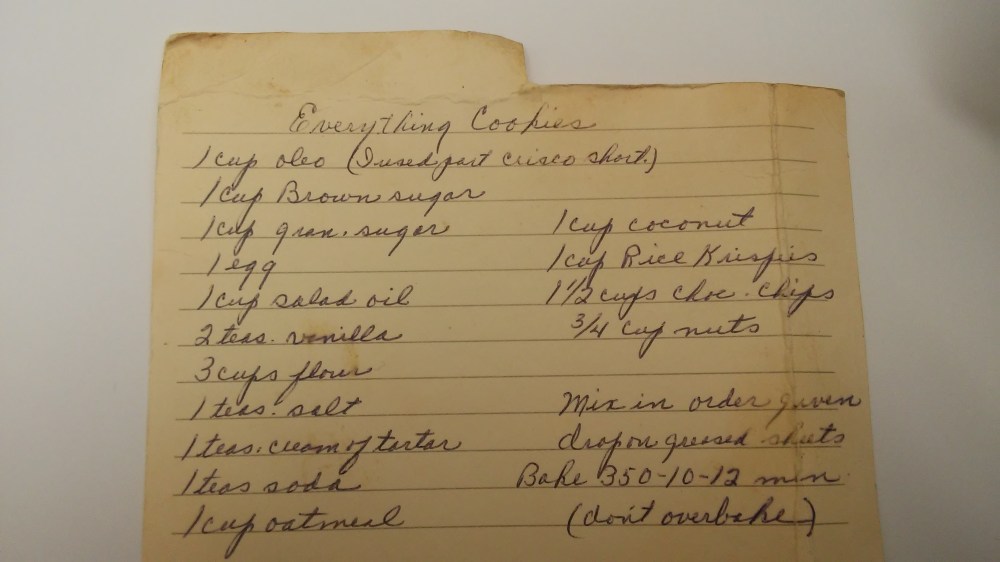 Everything Cookies
1 cup oleo (I used part crisco short.)
1 cup Brown sugar
1 cup gran. sugar
1 egg
1 cup salad oil
2 teas. vanilla
3 cups flour
1 teas. salt
1 teas. cream of tartar
1 teas soda
1 cup oatmeal
1 cup coconut
1 cup Rice Krispies
1 1/2 cups choc. chips
3/4 cup nuts
Mix in order given
drop on greased sheets
Bake 350-10-12 min.
(don't overbake)